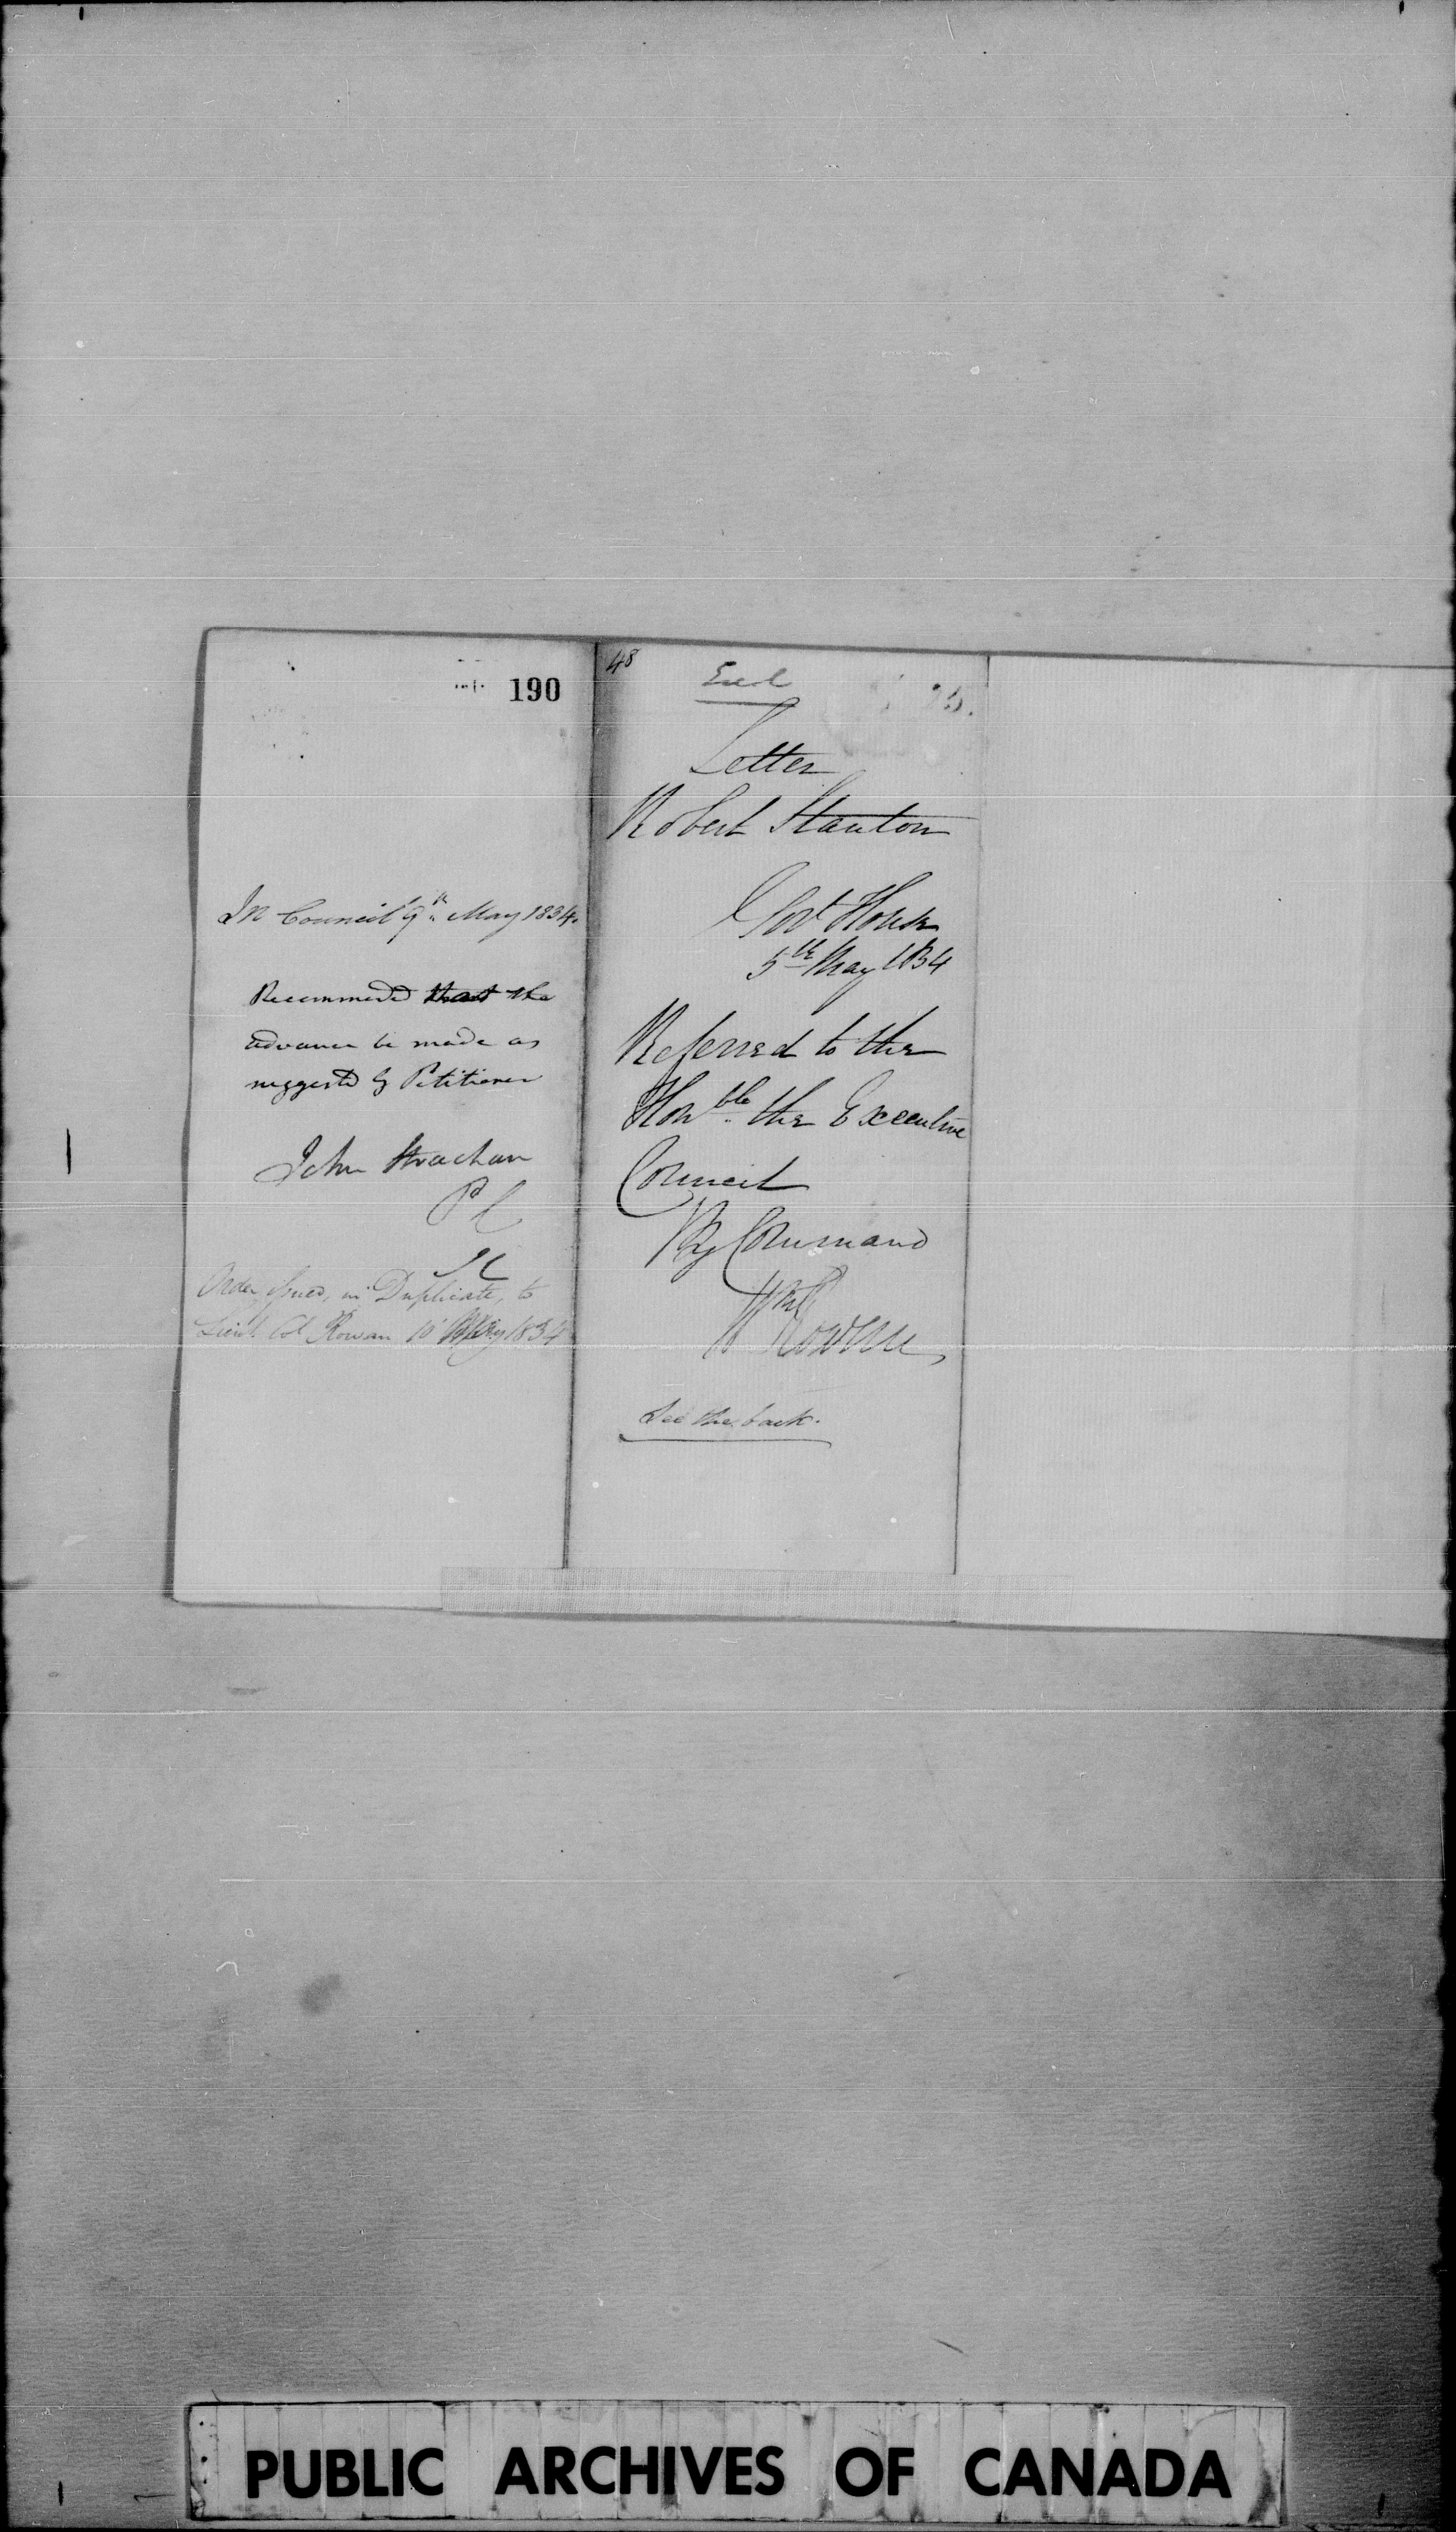 190
In Council 9th May 1834.
Recommended that the
advance be made as
suggested by Petitioner
John Strachan
P C
Order issued, in Duplicate, to
Lieut. Col Rowan 10 May 1834
48
Letter
Robert Stanton
Govt House
5th May 1834
Referred to the
Honble the Executive
Council
By Command
Wm Rowan
See the back.
PUBLIC ARCHIVES OF CANADA